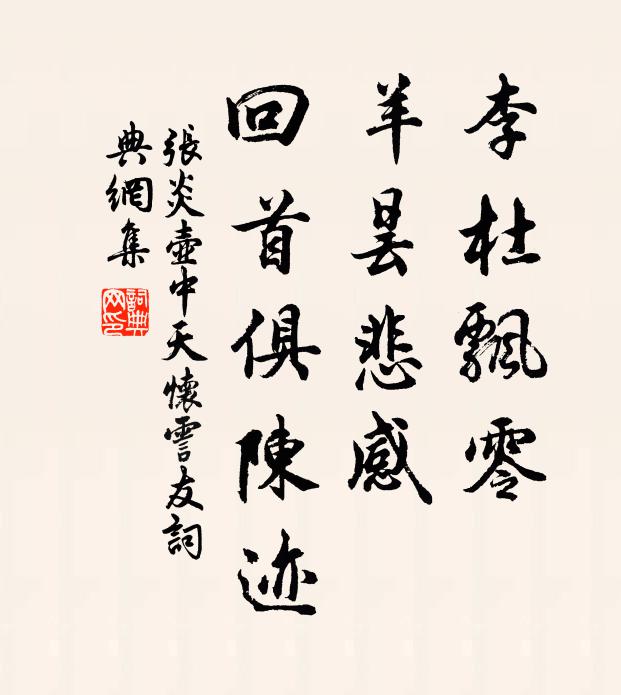 李杜飄零
羊曇悲感
回首俱陳迹
張炎壺中天懷雪友詞
典網集
詞典網印